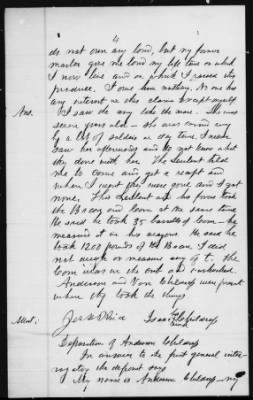 4
do not own any land, but my former
master gave me land my life time on which
I now live and on which I raised this
produce. I owe him nothing. No one has
any interest in this claim except myself.
Ans. I saw the any take the mare. She was
seven years old. She was carried away
by a lot of soldiers in day time. I never
saw her afterwards and do not know what
they done with her. The Lieutent told
me to come and get a receipt and
when I went they were gone and I got
none. This Lieutent and his force took
the Bacon and Corn at the same time
He said he took 35 barrells of Corn - he
measured it in his wagons. He said he
took 1200 pounds of the Bacon. I did
not weigh or measure any of it. The
Corn was in the crib and unshucked.
Anderson and Von Childress were present
when they took the things
Attest; Isaac Childress
his mark
Deposition of Anderson Childress
In answer to the first general inter-
rogatory the deponent says
My name is Anderson Childress my